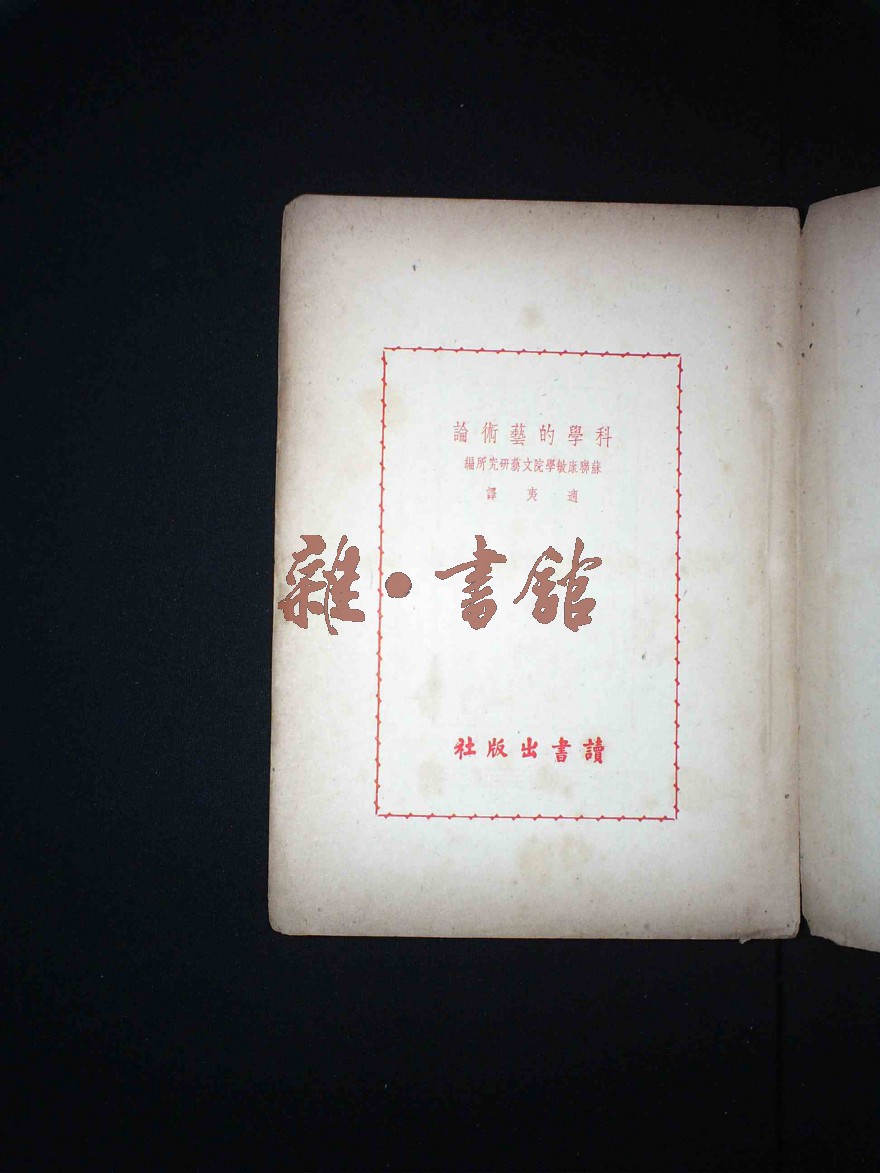 科學的藝術論
蘇聯康敏學院文藝研究所編
適夷譯
雜·書館
讀書出版社